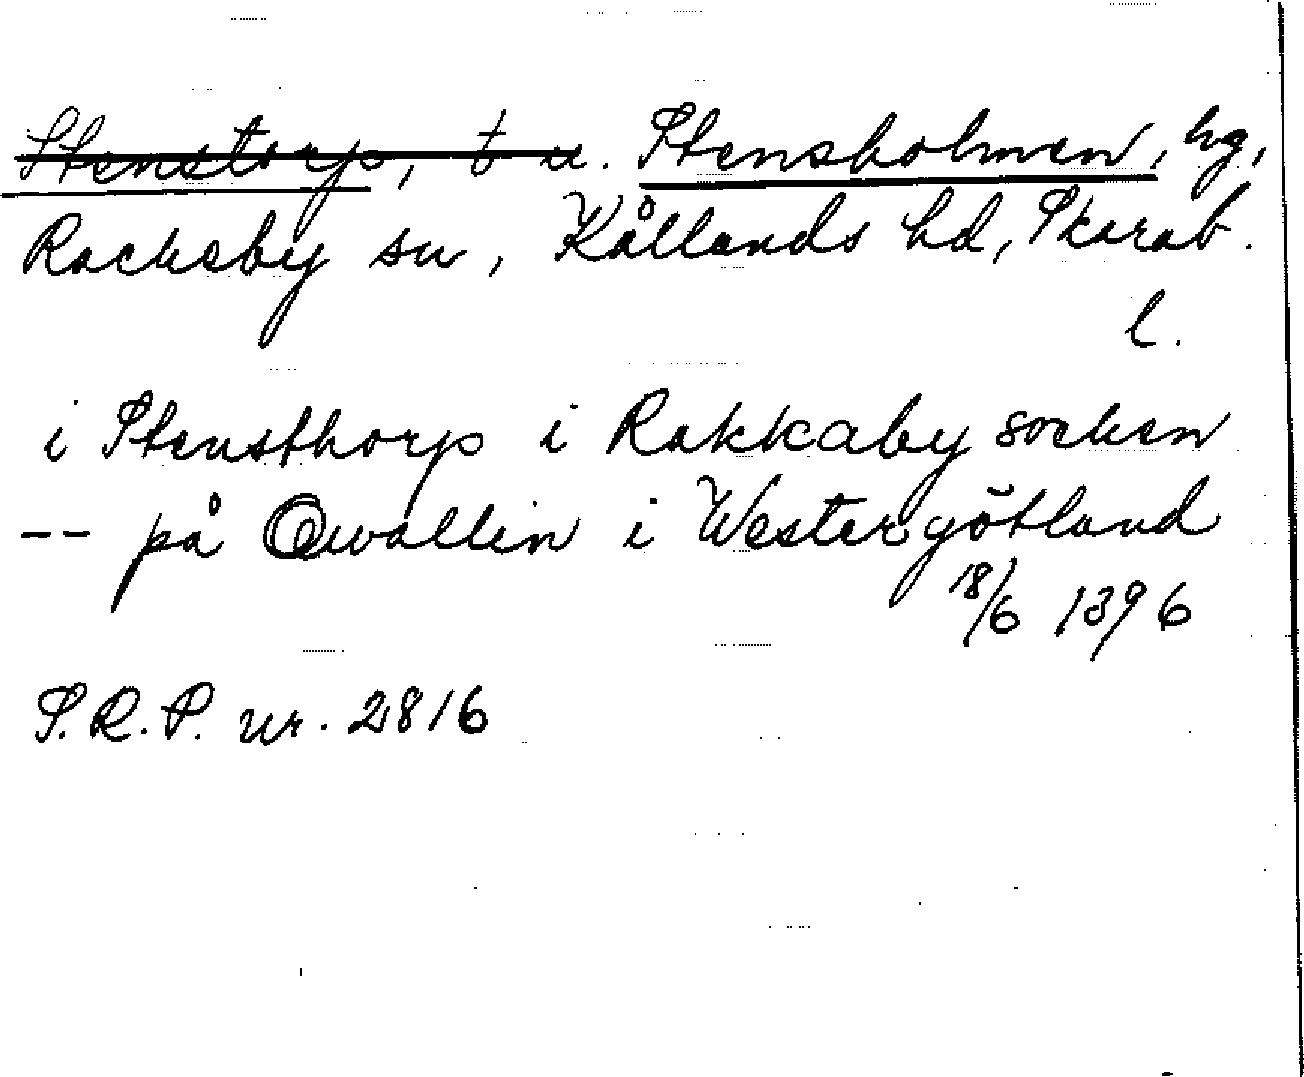 Stenstorp, t u. Stensholmen, hg,
Rackeby sn, Kållands hd, Skarab.
l.
i Stensthorp i Rakkaby socken
-- på Qwallin i Westergötland
18/6 1396
S.R.P. nr. 2816